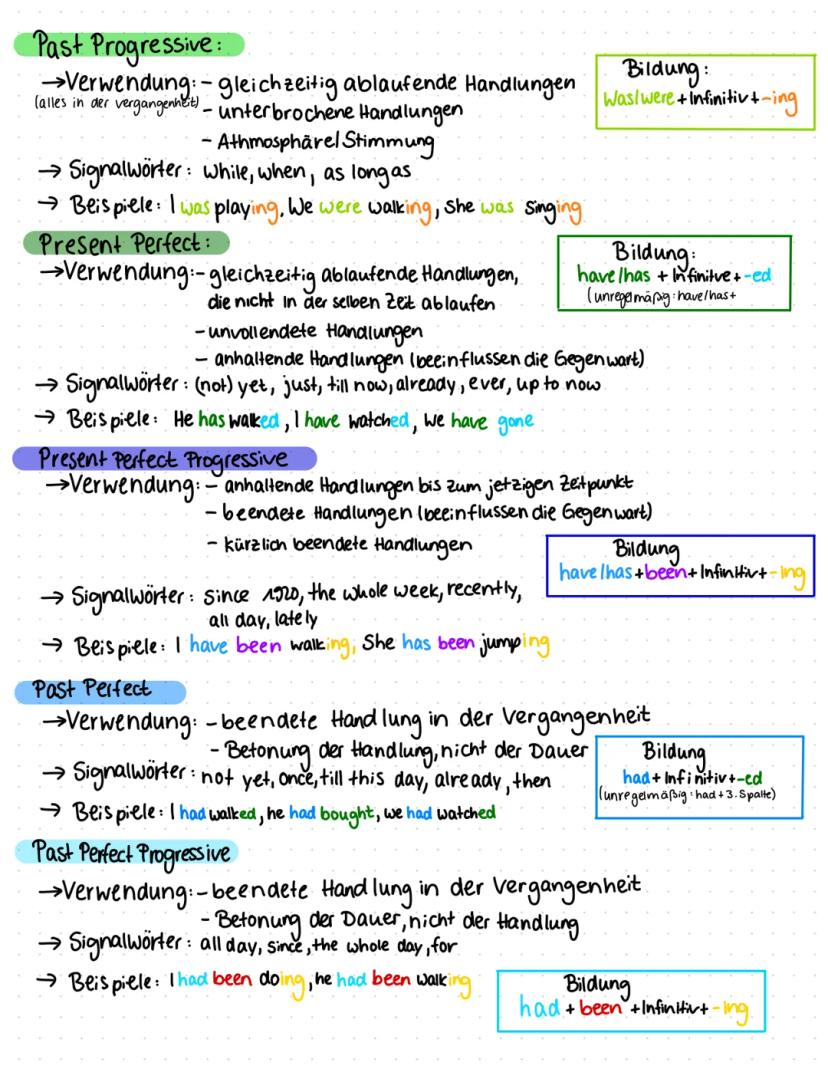 Past Progressive:
→Verwendung: - gleichzeitig ablaufende Handlungen
(alles in der vergangenheit) - unterbrochene Handlungen
- Athmosphäre/Stimmung
Bildung:
Was/were + Infinitiv + -ing
→ Signalwörter: while, when, as long as
→ Beispiele: I was playing, We were walking, She was singing
Present Perfect:
→Verwendung: - gleichzeitig ablaufende Handlungen,
die nicht in der selben Zeit ablaufen
- unvollendete Handlungen
- anhaltende Handlungen (beeinflussen die Gegenwart)
Bildung:
have/has + Infinitve + -ed
(unregelmäßig: have/has+
→ Signalwörter: (not) yet, just, till now, already, ever, up to now
→ Beispiele: He has walked, I have watched, We have gone
Present Perfect Progressive
→Verwendung: - anhaltende Handlungen bis zum jetzigen Zeitpunkt
- beendete Handlungen (beeinflussen die Gegenwart)
- kürzlich beendete Handlungen
Bildung
have/has + been + Infinitiv + -ing
→ Signalwörter: since 1920, the whole week, recently,
all day, lately
→ Beispiele: I have been walking, She has been jumping
Past Perfect
→Verwendung: - beendete Handlung in der Vergangenheit
- Betonung der Handlung, nicht der Dauer
→ Signalwörter: not yet, once, till this day, already, then
→ Beispiele: I had walked, he had bought, we had watched
Bildung
had + Infinitiv + -ed
(unregelmäßig: had + 3. Spalte)
Past Perfect Progressive
→Verwendung: - beendete Handlung in der Vergangenheit
- Betonung der Dauer, nicht der Handlung
→ Signalwörter: all day, since, the whole day, for
→ Beispiele: I had been doing, he had been walking
Bildung
had + been + Infinitiv + -ing